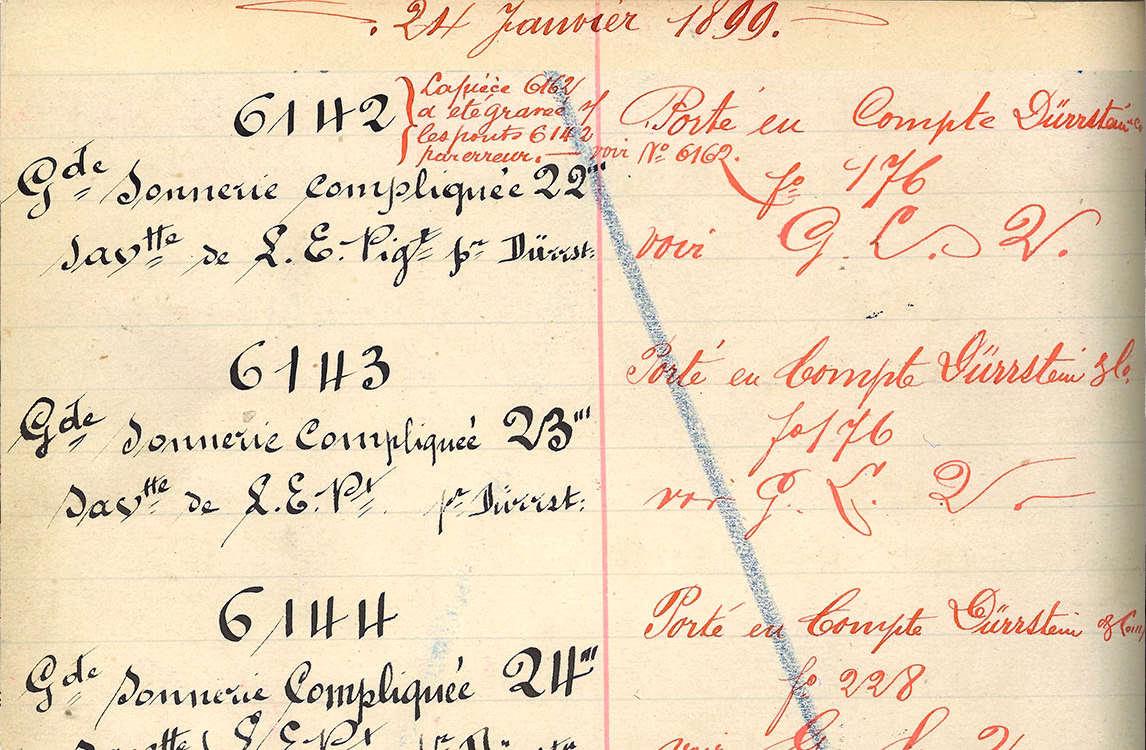 . 24 Janvier 1899.
6142
La pièce 6162
a été gravée s/
les ponts 6142
par erreur. — voir Nº 6162.
Gde Sonnerie compliquée 22'''
Savtte de L. E. Pigt pr Dürrst:
Porté en Compte Dürrstein & Co
fo 176
voir G. L. 2.
6143
Gde Sonnerie Compliquée 23'''
Savtte de L. E. Pt. pr Dürrst:
Porté en Compte Dürrstein & Co.
fo 176
voir G. L. 2.
6144
Gde Sonnerie Compliquée 24'''
Porté en Compte Dürrstein & Co
fo 228
voir G. L. 2